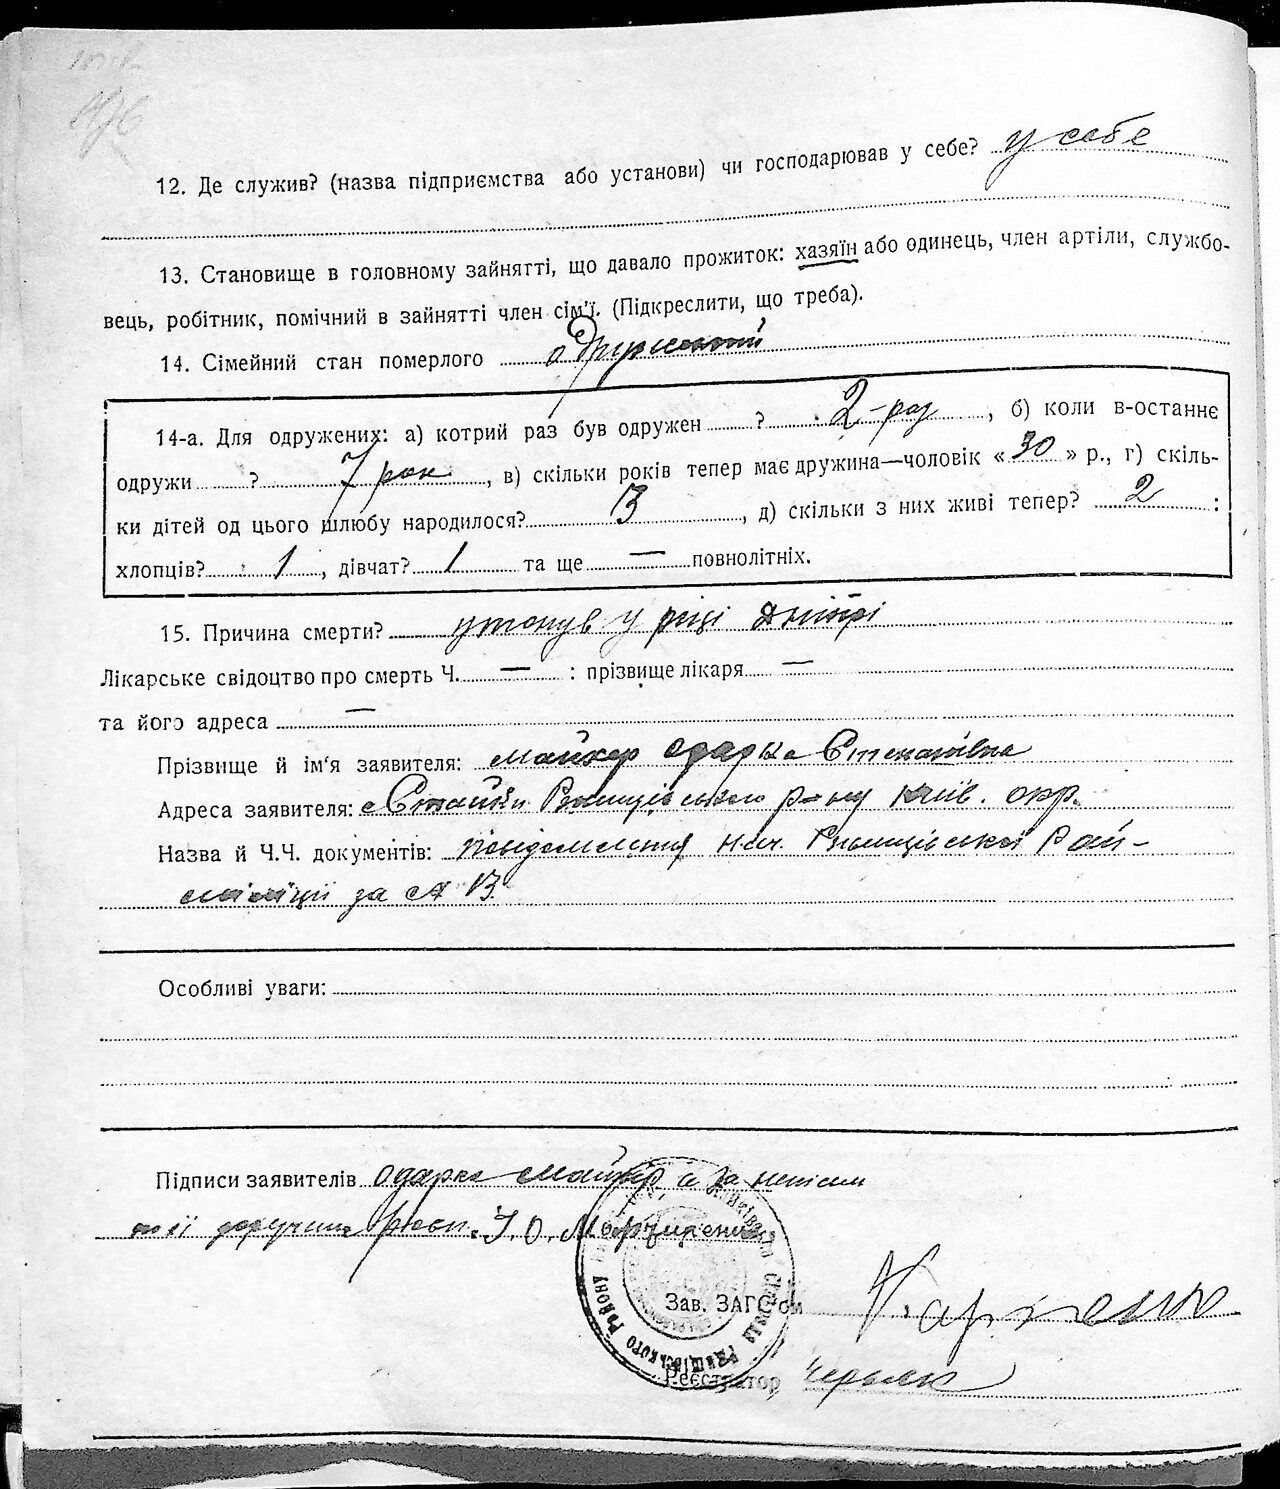 12. Де служив? (назва підприємства або установи) чи господарював у себе? у себе
13. Становище в головному зайнятті, що давало прожиток: хазяїн або одинець, член артіли, службо-
вець, робітник, помічний в зайнятті член сім'ї. (Підкреслити, що треба).
14. Сімейний стан померлого одружений
14-а. Для одружених: а) котрий раз був одружен ? 2-раз, б) коли в-останнє
одружи ? 7 рок, в) скільки років тепер має дружина—чоловік «30» р., г) скіль-
ки дітей од цього шлюбу народилося? 3, д) скільки з них живі тепер? 2 :
хлопців? : 1, дівчат? 1 та ще — повнолітніх.
15. Причина смерти? утонув у ріці Дніпрі
Лікарське свідоцтво про смерть Ч. — : прізвище лікаря —
та його адреса —
Прізвище й ім'я заявителя: Одарка Степанівна
Адреса заявителя: с Стайки Ржищівського р-ну Київ. окр.
Назва й Ч.Ч. документів: повідомлення нач. Ржищівської Рай-
міліції за № 13.
Особливі уваги:
Підписи заявителів Одарка а за неписьм
її доручен. І. О.
Зав. ЗАГС'ом
Реєстратор